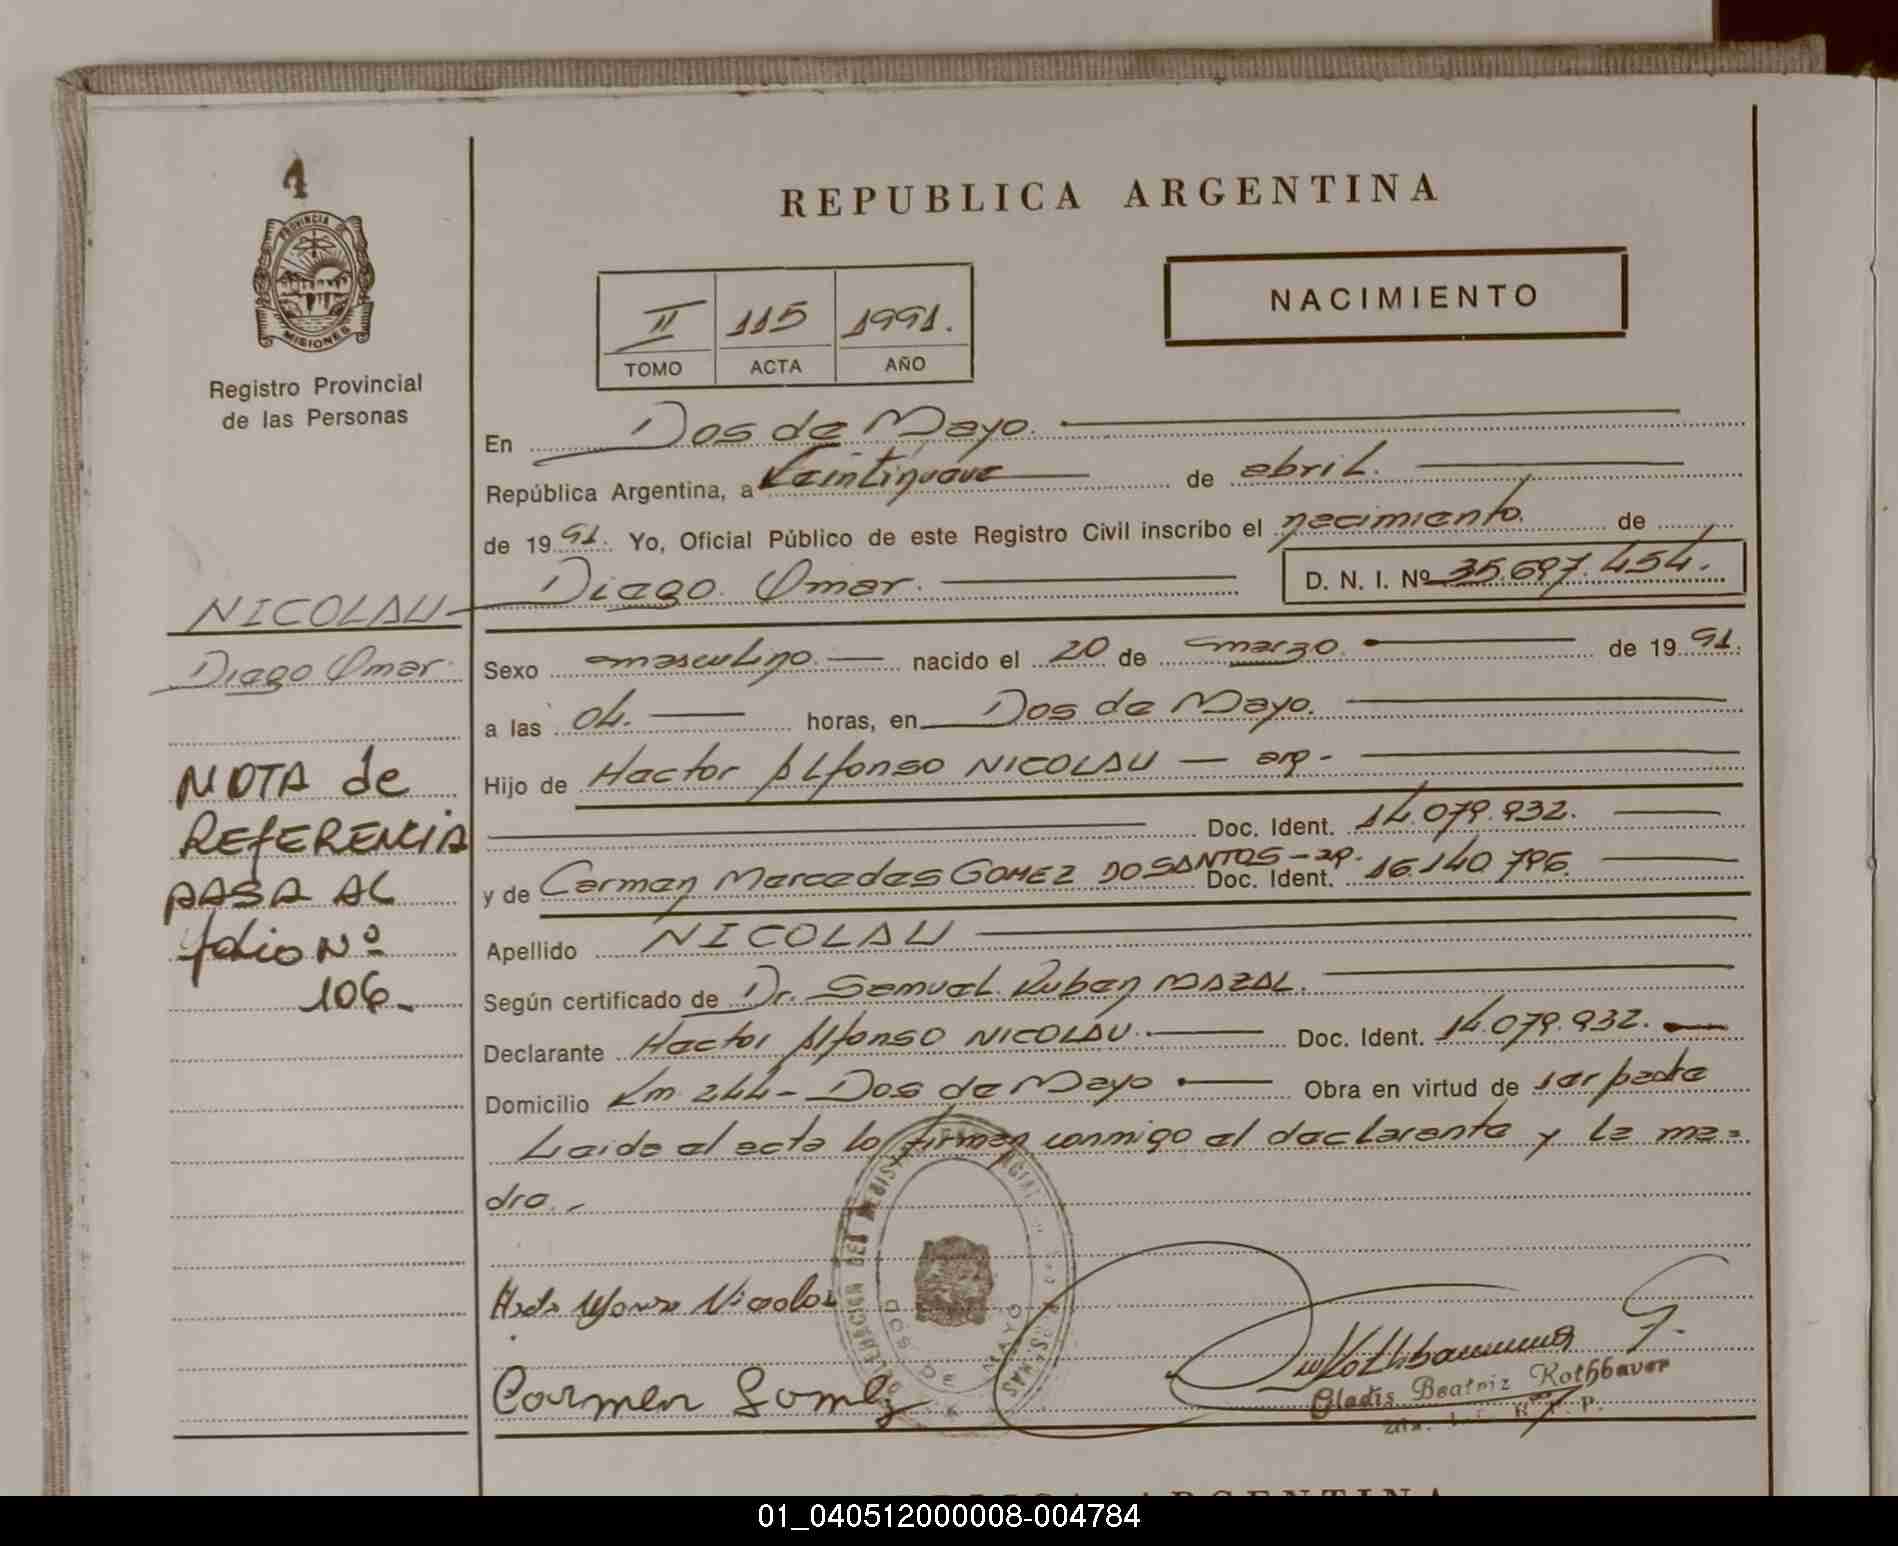 1
PROVINCIA DE
MISIONES
Registro Provincial
de las Personas
REPUBLICA ARGENTINA
II 115 1991.
TOMO ACTA AÑO
NACIMIENTO
En Dos de Mayo.
República Argentina, a Veintinueve de abril.
de 1991. Yo, Oficial Público de este Registro Civil inscribo el nacimiento. de
Diego Omar. D. N. I. Nº 35.697.454.
NICOLAU
Diego Omar.
NOTA de
REFERENCIA
PASA AL
folio Nº
106.
Sexo masculino. nacido el 20 de marzo. de 1991.
a las 04. horas, en Dos de Mayo.
Hijo de Hector Alfonso NICOLAU — arg.
Doc. Ident. 14.079.932.
y de Carmen Mercedes GOMEZ DO SANTOS - ar. Doc. Ident. 16.140.796.
Apellido NICOLAU
Según certificado de Dr. Samuel Ruben MAZAL.
Declarante Hector Alfonso NICOLAU. Doc. Ident. 14.079.932.
Domicilio Km 244 - Dos de Mayo Obra en virtud de ser padre
Leida el acta lo firman conmigo el declarante y la ma-
dre.-
DOS DE MAYO
Carmen Gomez
Rothbauer G.
Gladis Beatriz Rothbauer
R. P. P.
REPUBLICA ARGENTINA
01_040512000008-004784